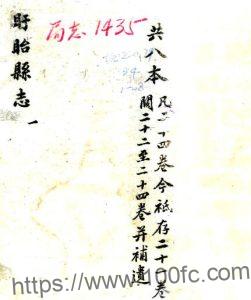 共八本
凡二十四卷今祗存二十一卷
闕二十二至二十四卷并補遺
局志1435
盱眙縣志 一
https://www.100fc.com